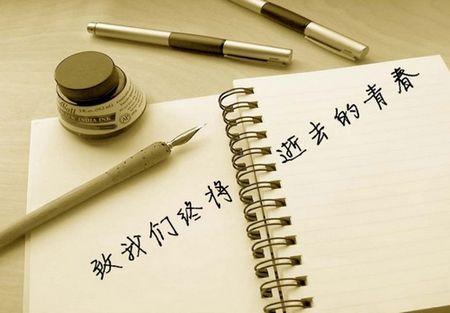 致我们终将逝去的青春
INDIA INK